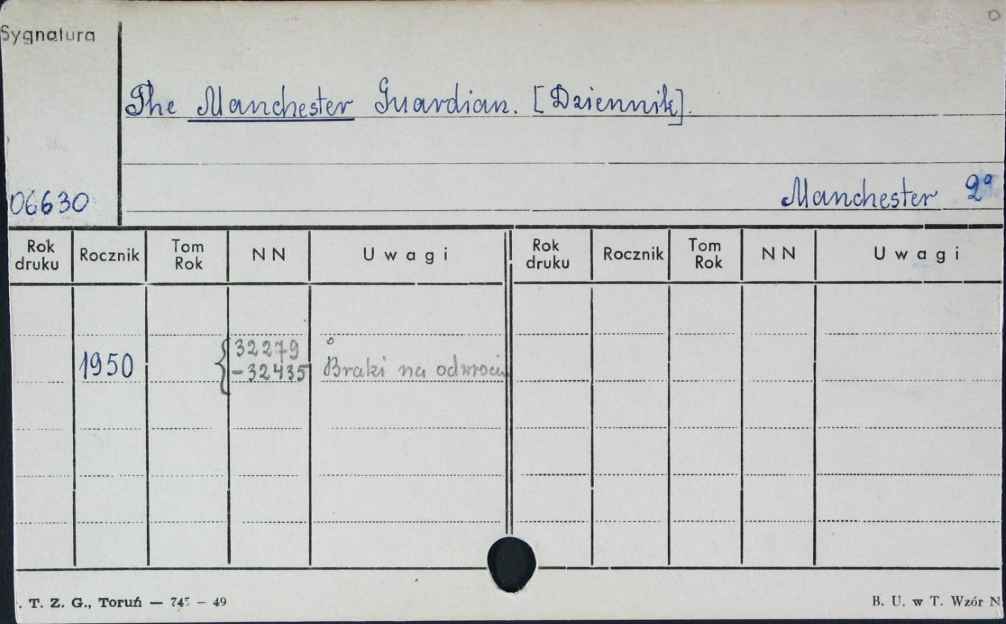 Sygnatura
The Manchester Guardian. [Dziennik].
06630
Manchester 2°
Rok druku Rocznik Tom Rok NN Uwagi Rok druku Rocznik Tom Rok NN Uwagi
1950 { 32279
-32435 Braki na odwrocie
. T. Z. G., Toruń — 745 – 49 B. U. w T. Wzór N